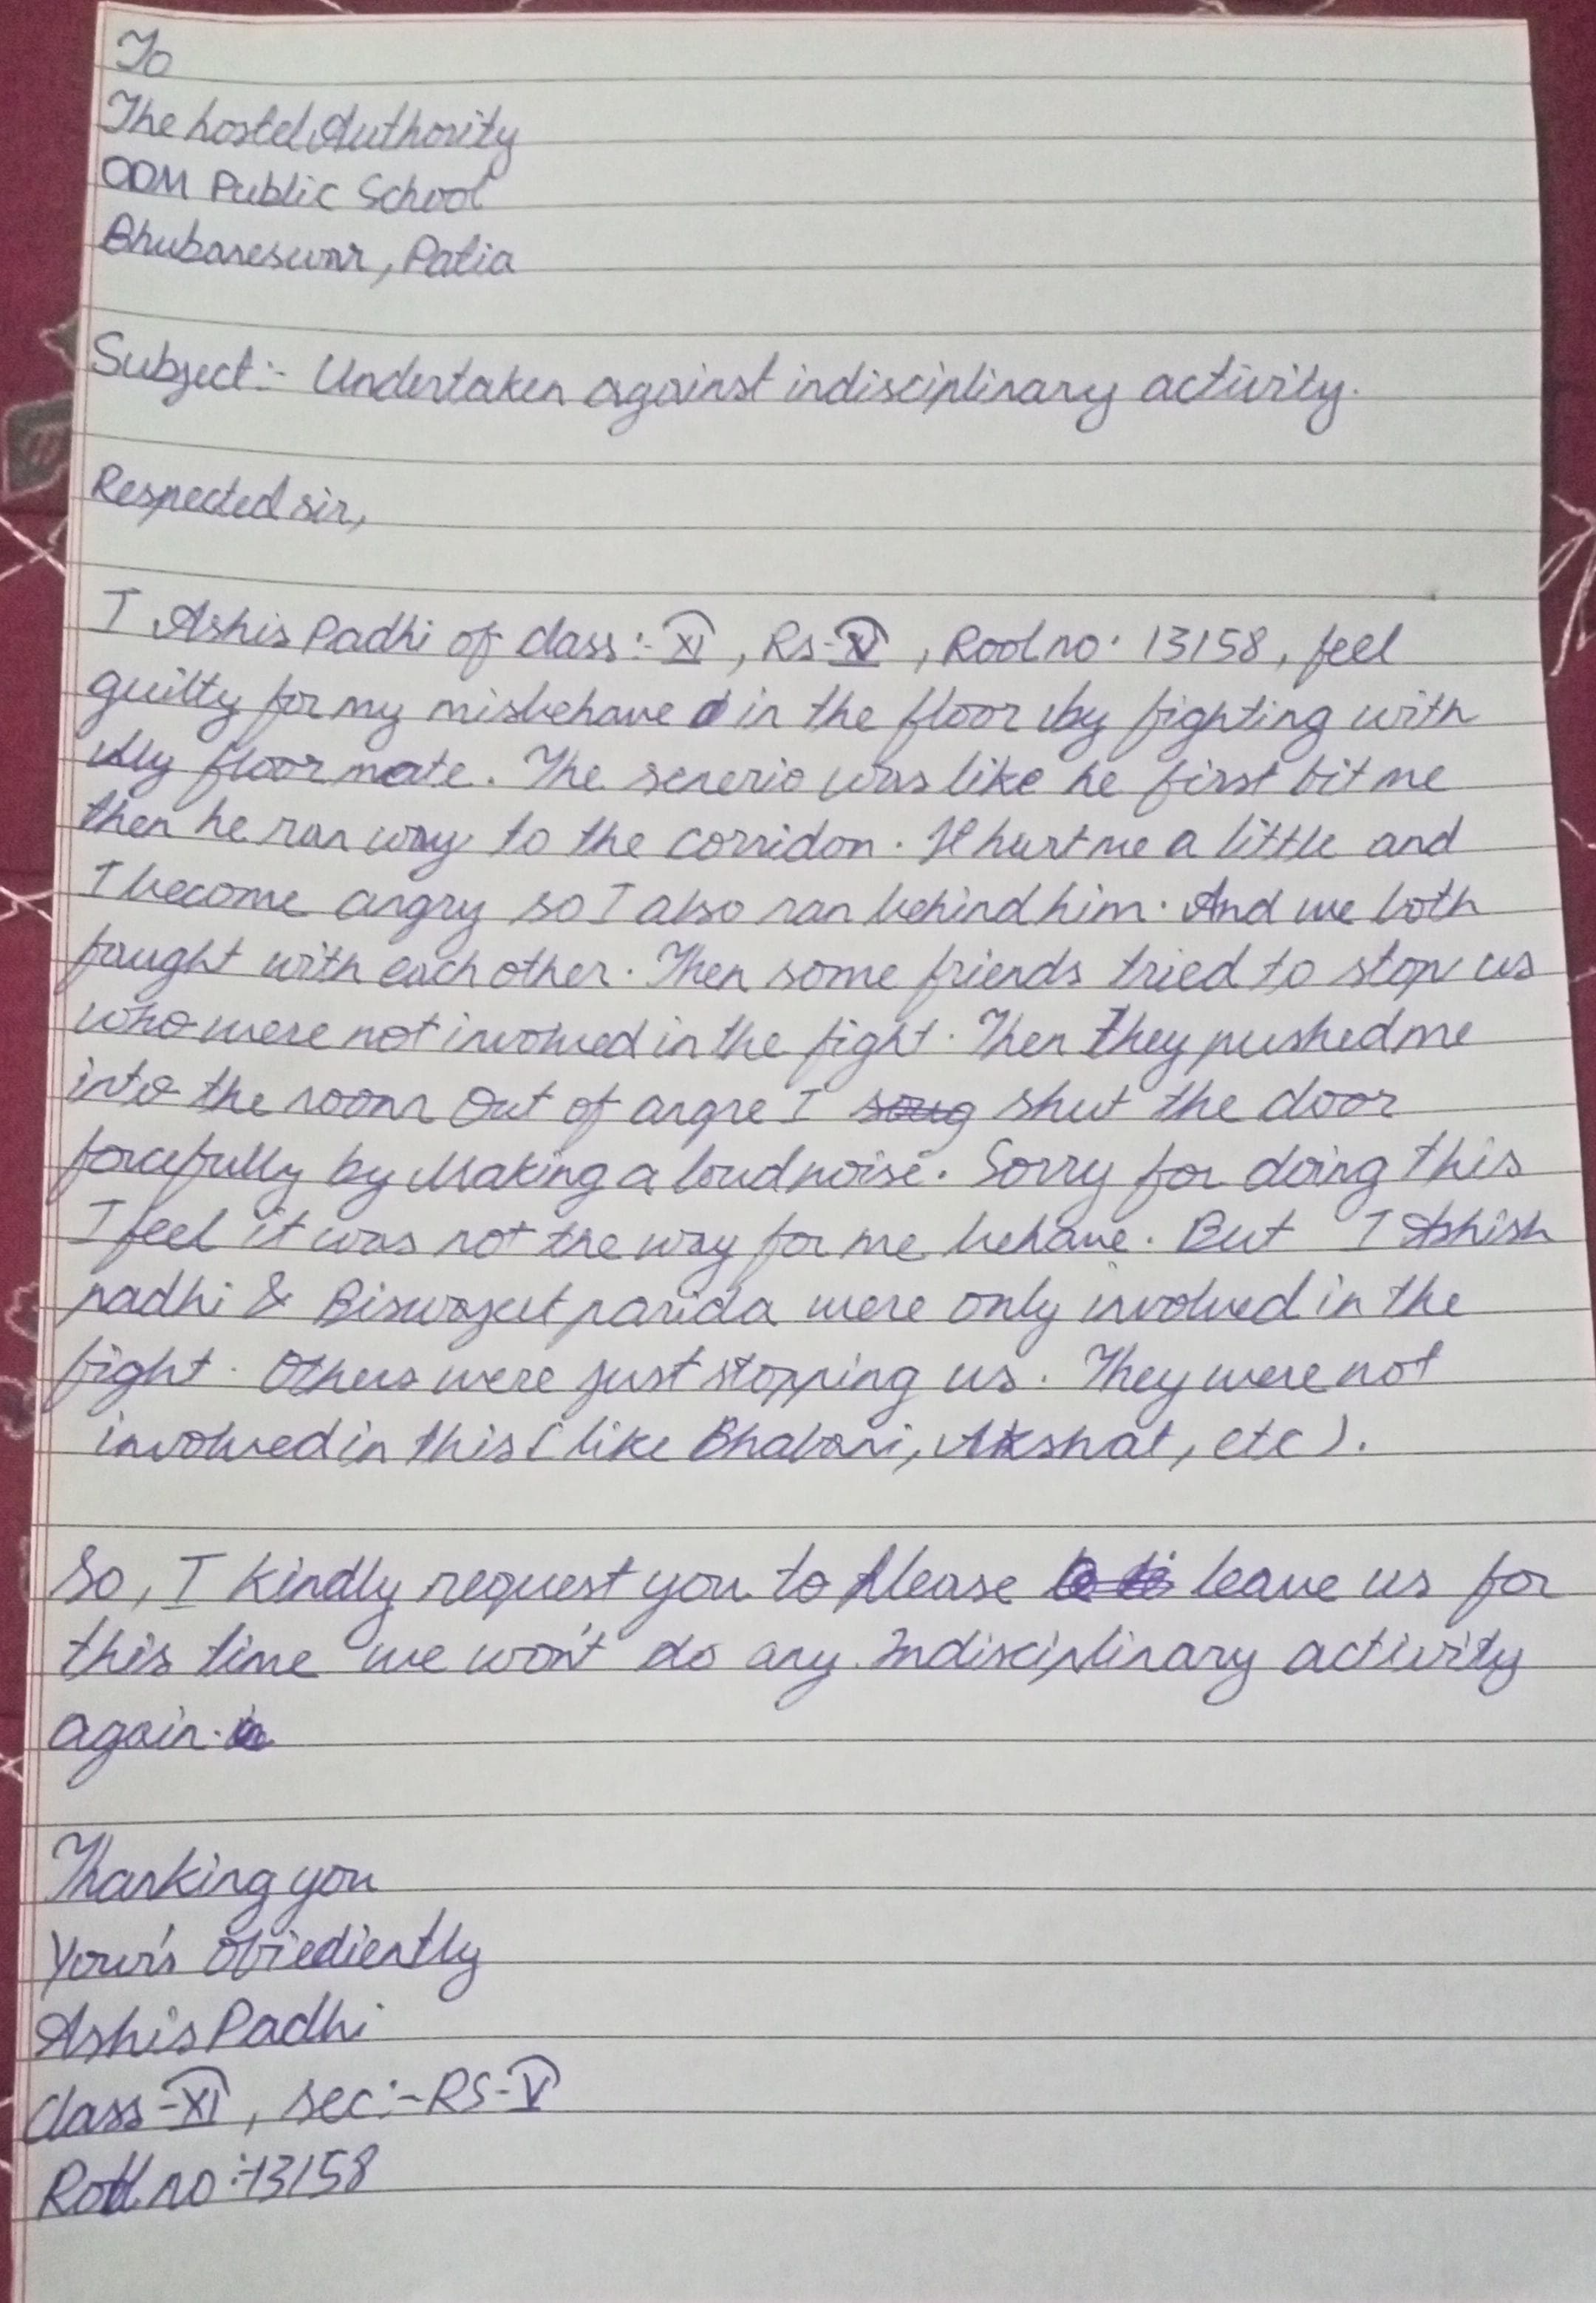 To
The hostel Authority
ODM Public School
Bhubaneswar, Patia
Subject:- Undertaken against indisciplinary activity.
Respected sir,
I Ashis Padhi of class:- XI, RS-V, Rool no. 13158, feel
guilty for my misbehave in the floor by fighting with
My floor mate. The senerio was like he first bit me
then he ran way to the corridon. It hurt me a little and
I become angry so I also ran behind him. And we both
faught with each other. Then some friends tried to stop us
who were not involved in the fight. Then they pushed me
into the room Out of angre I shut the door
forcefully by Making a loud noise. Sorry for doing this
I feel it was not the way for me behave. But I Ashish
padhi & Biswajeet parida were only involved in the
fight. Others were just stopping us. They were not
involved in this (like Bhabani, Akshat, etc).
So, I kindly request you to Please leave us for
this time we won't do any Indisciplinary activity
again.
Thanking you
Your's Obiediently
Ashis Padhi
class-XI, sec:-RS-V
Roll no:-13158